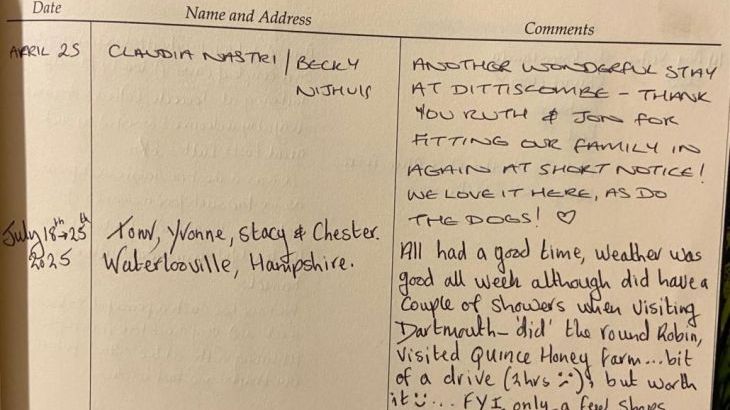 Date Name and Address Comments
APRIL 25 CLAUDIA NASTRI / BECKY
NIJHUIS
ANOTHER WONDERFUL STAY
AT DITTISCOMBE - THANK
YOU RUTH & JON FOR
FITTING OUR FAMILY IN
AGAIN AT SHORT NOTICE!
WE LOVE IT HERE, AS DO
THE DOGS! ♡
July 18th→25th
2025
Tony, Yvonne, Stacy & Chester.
Waterlooville, Hampshire.
All had a good time, weather was
good all week although did have a
couple of showers when visiting
Dartmouth - 'did' the round Robin,
visited Quince Honey Farm... bit
of a drive (2hrs :), but worth
it :)... FYI only a few shops